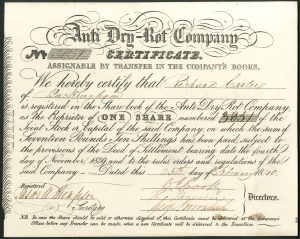 Anti Dry-Rot Company
No.
CERTIFICATE.
ASSIGNABLE BY TRANSFER IN THE COMPANY'S BOOKS.
We hereby certify that Richard
of
is registered in the Share book of the Anti Dry-Rot Company,
as the Proprietor of ONE SHARE numbered 3051 of the
Joint Stock or Capital of the said Company; on which the sum
of Seventeen Pounds Ten Shillings has been paid, subject to
the provisions of the Deed of Settlement bearing date the fourth
day of November 1839, and to the rules orders and regulations of the
said Company — Dated this day of 1840.
Registered
Directors.
Secretary
N.B. In case the Share should be sold or otherwise disposed of, this Certificate must be delivered at the Company's
Offices before any Transfer can be made, when a new Certificate will be delivered to the Transferee.